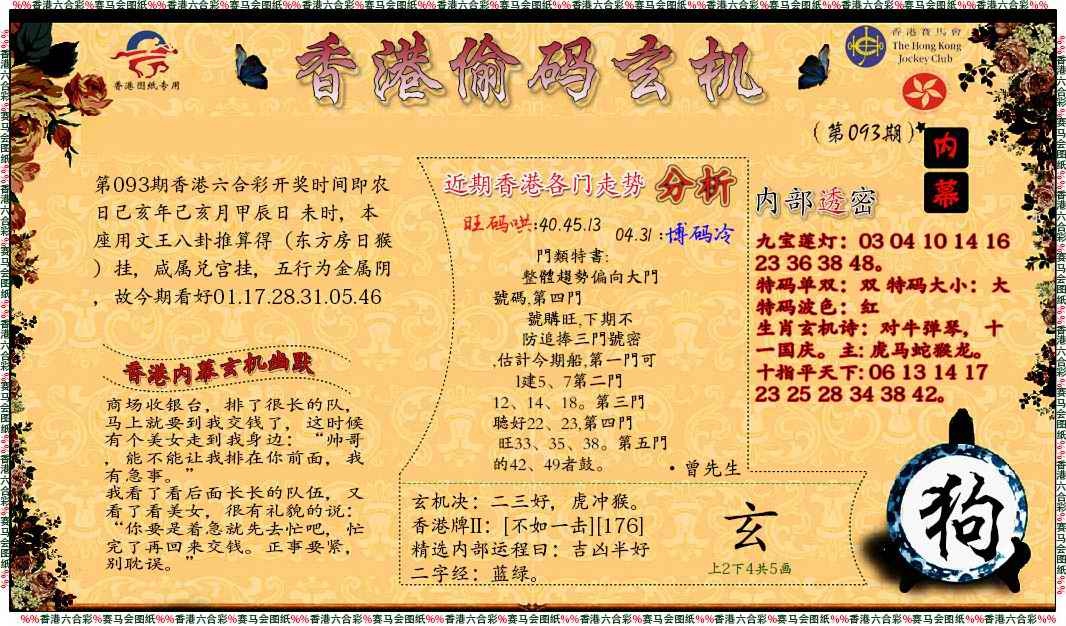 %%香港六合彩%赛马会图纸%%香港六合彩%赛马会图纸%%香港六合彩%赛马会图纸%%香港六合彩%赛马会图纸%%香港六合彩%赛马会图纸%%香港六合彩%赛马会图纸%%香港六合彩%赛马会图纸%%香港六合彩%%
香港图纸专用
香港偷码玄机
香港賽馬會
The Hong Kong
Jockey Club
(第093期)
内
幕
第093期香港六合彩开奖时间即农
日己亥年己亥月甲辰日 未时，本
座用文王八卦推算得（东方房日猴
）挂，咸属兑宫挂，五行为金属阴
，故今期看好01.17.28.31.05.46
香港内幕玄机幽默
商场收银台，排了很长的队，
马上就要到我交钱了，这时候
有个美女走到我身边：“帅哥
，能不能让我排在你前面，我
有急事。”
我看了看后面长长的队伍，又
看了看美女，很有礼貌的说：
“你要是着急就先去忙吧，忙
完了再回来交钱。正事要紧，
别耽误。”
近期香港各门走势 分析
旺码哄:40.45.13
04.31 :博码冷
門類特書:
整體趨勢偏向大門
號碼,第四門
號購旺,下期不
防追捧三門號密
,估計今期船,第一門可
1建5、7第二門
12、14、18。第三門
聽好22、23,第四門
旺33、35、38。第五門
的42、49者鼓。
•曾先生
玄机决：二三好，虎冲猴。
香港牌II：[不如一击][176]
精选内部运程曰：吉凶半好
二字经：蓝绿。
玄
上2下4共5画
内部透密
九宝莲灯：03 04 10 14 16
23 36 38 48。
特码单双：双 特码大小：大
特码波色：红
生肖玄机诗：对牛弹琴，十
一国庆。主: 虎马蛇猴龙。
十指平天下: 06 13 14 17
23 25 28 34 38 42。
狗
%%香港六合彩%赛马会图纸%%香港六合彩%赛马会图纸%%香港六合彩%赛马会图纸%%香港六合彩%赛马会图纸%%香港六合彩%赛马会图纸%%香港六合彩%赛马会图纸%%香港六合彩%赛马会图纸%%香港六合彩%%